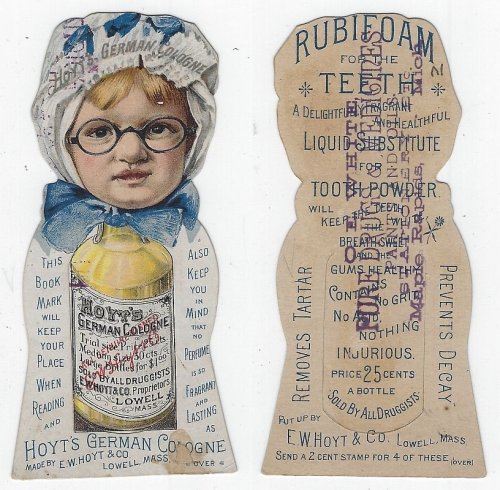 HOYT'S GERMAN COLOGNE
THIS
BOOK
MARK
WILL
KEEP
YOUR
PLACE
WHEN
READING
AND
ALSO
KEEP
YOU
IN
MIND
THAT
NO
PERFUME
IS SO
FRAGRANT
AND
LASTING
AS
HOYT'S
GERMAN COLOGNE
Trial size
Medium size 50 cts.
Large Bottles for $1.00
SOLD BY ALL DRUGGISTS
E.W. HOYT & CO. Proprietors.
LOWELL
MASS
HOYT'S GERMAN COLOGNE
MADE BY E.W. HOYT & CO. LOWELL, MASS. OVER
RUBIFOAM
FOR THE
TEETH
A DELIGHTFUL FRAGRANT
AND HEALTHFUL
LIQUID SUBSTITUTE
FOR
TOOTH POWDER.
WILL
KEEP THE TEETH WHITE
THE
BREATH SWEET
AND THE
GUMS HEALTHY
CONTAINS NO GRIT
NO ACID
NOTHING
INJURIOUS.
PRICE 25 CENTS
A BOTTLE
SOLD BY ALL DRUGGISTS
REMOVES TARTAR
PREVENTS DECAY
PUT UP BY
E.W. HOYT & CO. LOWELL, MASS
SEND A 2 CENT STAMP FOR 4 OF THESE (OVER)
O. E. WHITE
PURE DRUGS
STATIONERY
Maple Rapids, Mich
2